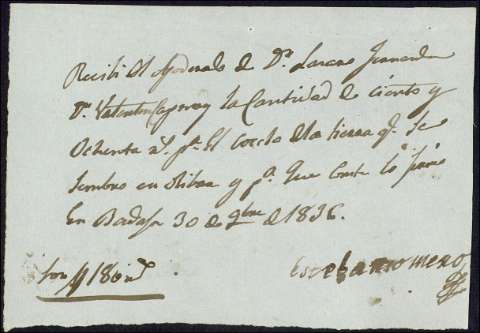 Recibi del Apoderado de Dn. Lazaro Fernandez
Dn. Valentin la Cantidad de ciento y
Ochenta rs. pr. El coste de la tierra qe. se
sembro en Ribera y pa. que conste lo firmo
En 30 de 9bre de 1836.
Son 180 rs
Esteban Romero